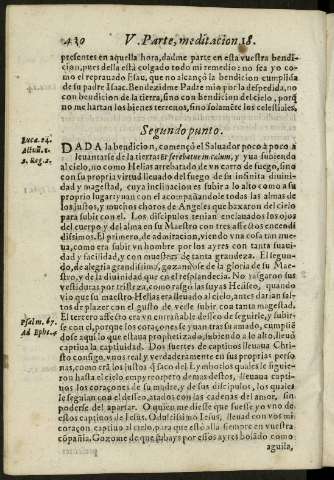 430 V. Parte, meditacion, 18.
presentes en aquella hora, dadme parte en esta vuestra bendi-
cion, pues della està colgado todo mi remedio: no sea yo co-
mo el reprauado Esau, que no alcançò la bendicion cumplida
de su padre Isaac. Bendezidme Padre mio por la despedida, no
con bendicion de la tierra, sino con bendicion del cielo, porq̃
no me hartan los bienes terrenos, sino solamẽte los celestiales.
Segundo punto.
Luca. 24.
Actuũ. 1.
DADA la bendicion, començò el Salvador poco à poco a
leuantarse de la tierra: Et ferebatur in cœlum, y yua subiendo
al cielo, no como Helias arrebatado de vn carro de fuego, sino
con su propria virtud lleuado del fuego de su infinita diuini-
dad y magestad, cuya inclinacion es subir a lo alto como a su
proprio lugar: yuan con el acompañandole todas las almas de
los justos, y muchos choros de Angeles que baxaron del cielo
para subir con el. Los discipulos tenian enclauados los ojos
del cuerpo y del alma en su Maestro con tres affectos encendi-
dissimos. El primero, de admiracion, viendo vna cosa tan nue-
ua, como era subir vn hombre por los ayres con tanta suaui-
dad y facilidad, y con muestras de tanta grandeza. El segun-
do, de alegria grandissima, gozandose de la gloria de su Mae-
stro, y de la diuinidad que en el resplandecia. No rasgaron sus
vestiduras por tristeza, como rasgò las suyas Heliseo, quando
vio que su maestro Helias era lleuado al cielo, antes darian sal-
tos de plazer con el gusto de verle subir con tanta magestad.
Psalm. 67.
Ad Ephe. 4.
El tercero affecto era vn entrañable desseo de seguirle, y subir-
se con el, porque los coraçones se yuan tras su amado, cumpliẽ
dose aquello que estaua prophetizado, subiendo a lo alto, lleuò
captiua la captiuidad. Dos suertes de captiuos lleuaua Chri-
sto consigo, vnos real y verdaderamente en sus proprias perso-
nas, como erã los justos
ron hasta el cielo empyreo: pero demas destos, lleuaua captiuos
los coraçones de su madre, y de sus discipulos, los quales
le seguian con el desseo, atados con las cadenas del amor, sin
poderse del apartar. O quien me diesse que fuesse yo vno de
estos captiuos de Iesus. O dulcissimo Iesus, lleuad con vos mi
coraçon captiuo al cielo, para que estè alla siempre en vuestra
cõpañia. Gozome de que subays por essos ayres bolãdo como
aguila,